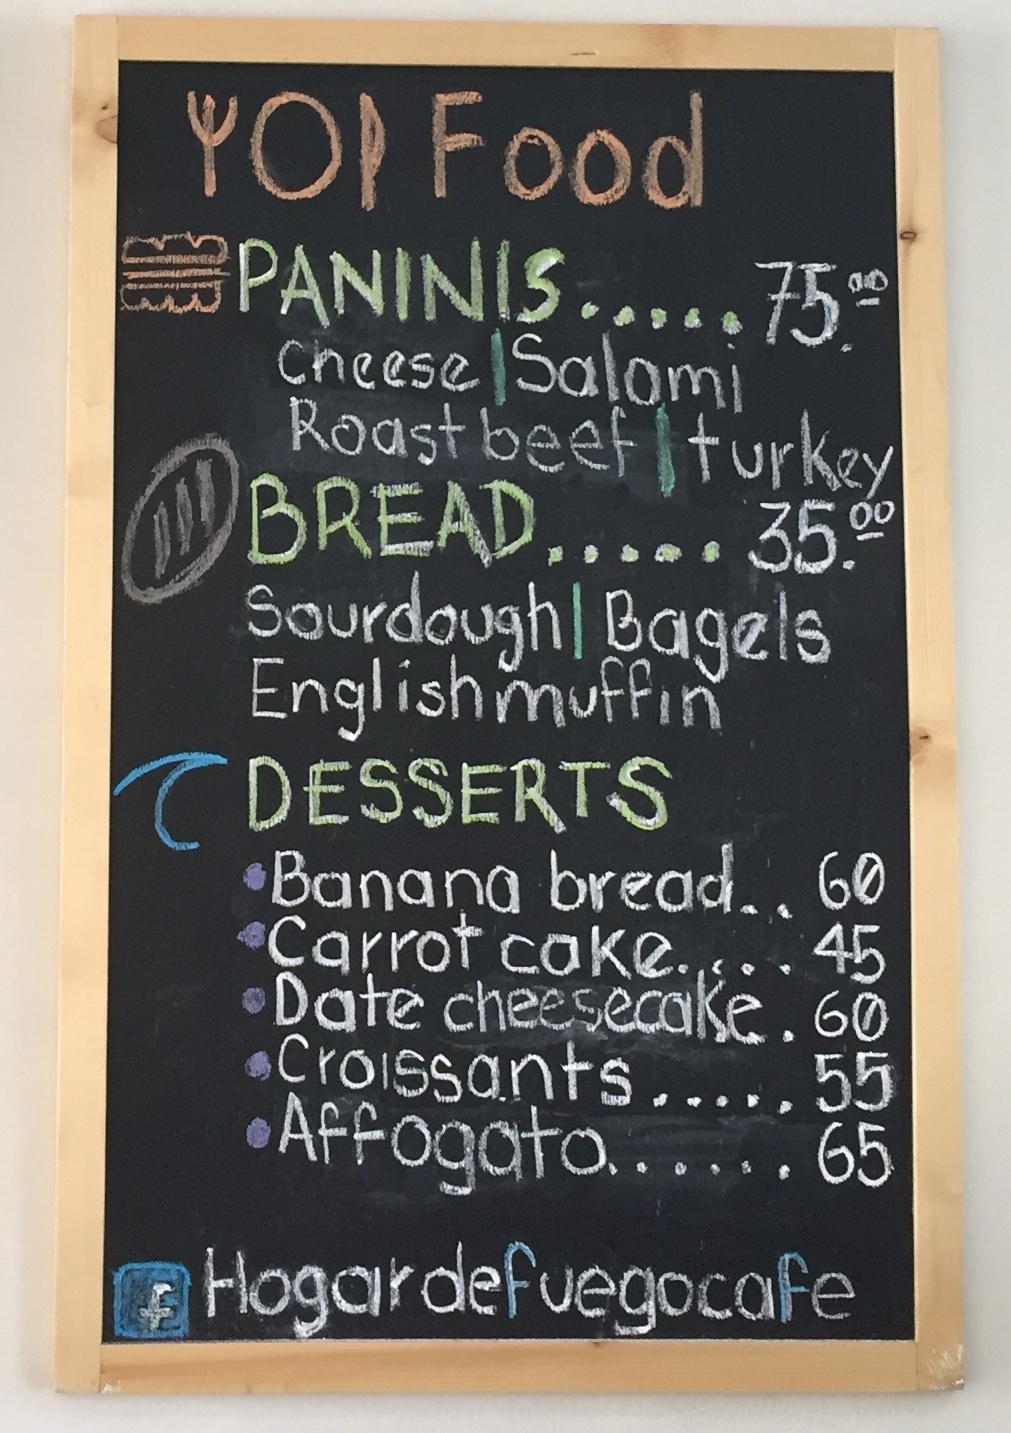 Food
PANINIS..... 75.00
cheese | Salami
Roast beef | turkey
BREAD...... 35.00
Sourdough | Bagels
English muffin
DESSERTS
• Banana bread.. 60
• Carrot cake.... 45
• Date cheesecake. 60
• Croissants..... 55
• Affogato....... 65
f Hogardefuegocafe